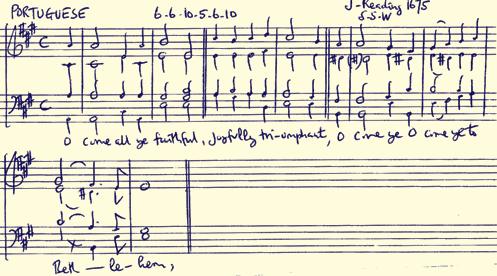 PORTUGUESE 6-6-10-5-6-10 J-Reading 1675
S-S-W
O come all ye faithful, Joyfully tri-umphant, O come ye O come ye to
Beth — le-hem,